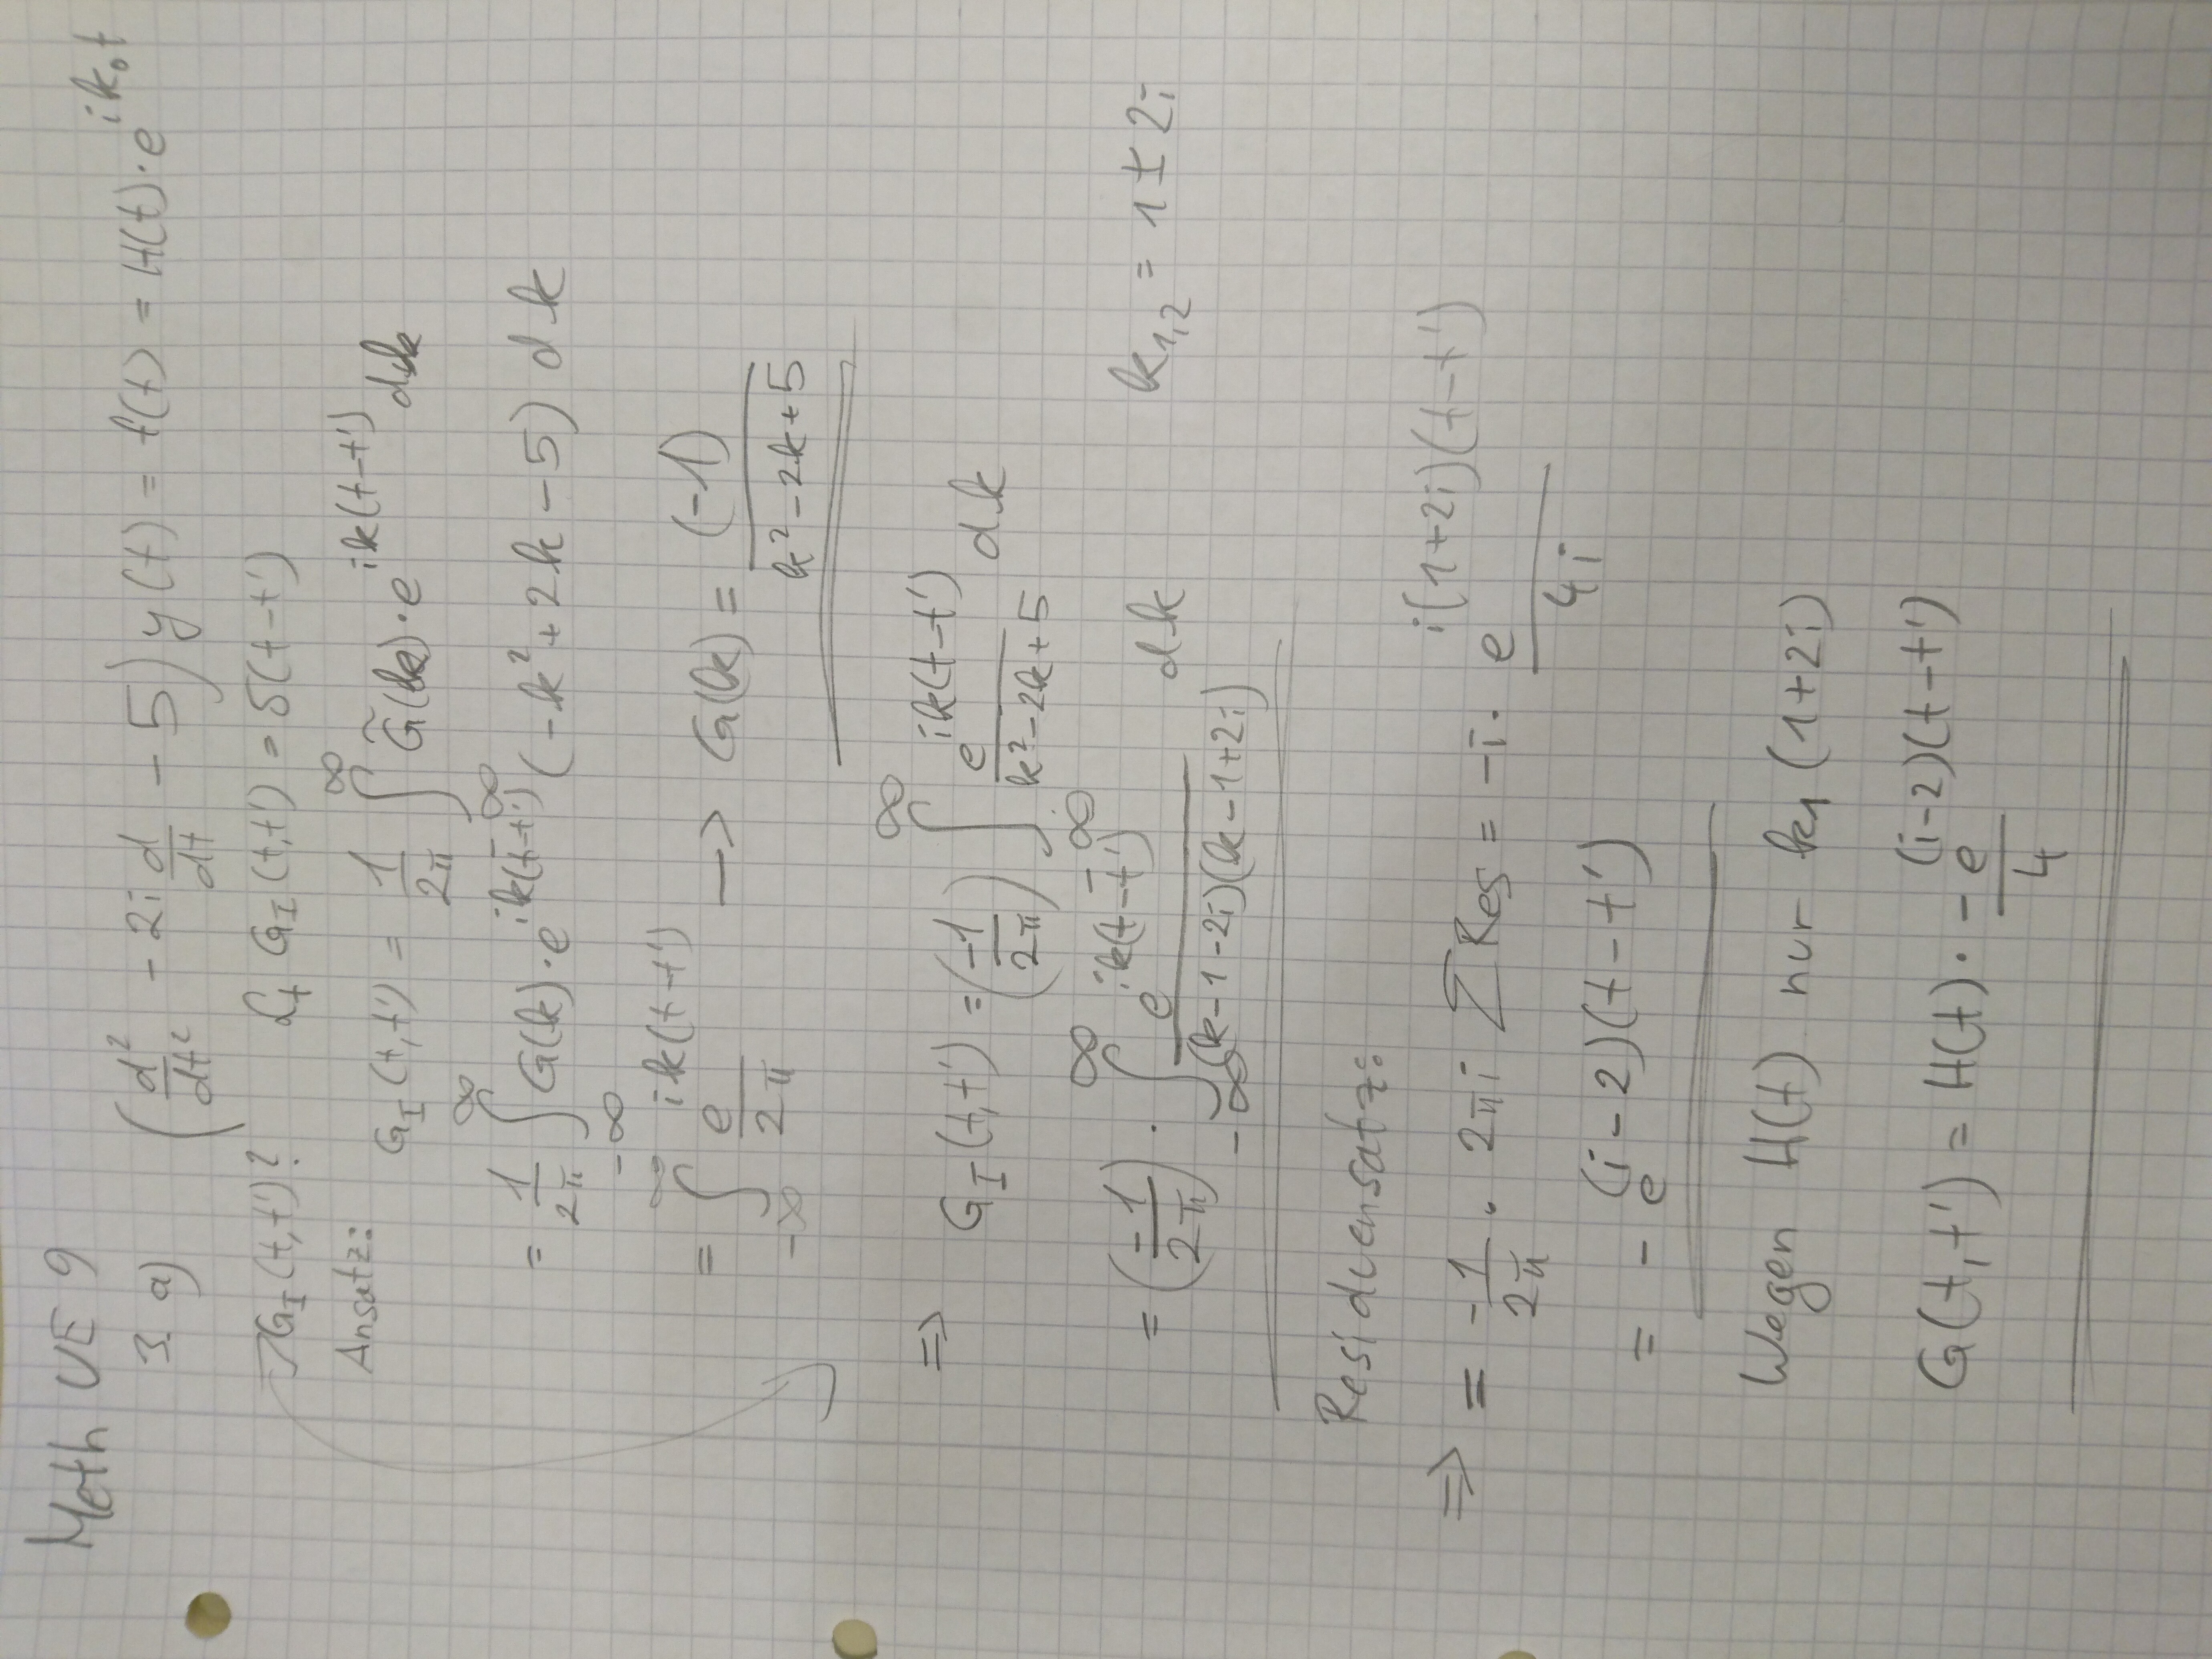 Meth UE 9
3. a) (d²/dt² - 2i d/dt - 5) y(t) = f(t) = H(t)·e^{ik₀t}
G_I(t,t')? L_t G_I(t,t') = δ(t-t')
Ansatz: G_I(t,t') = 1/2π ∫^∞ G̃(k)·e^{ik(t-t')} dk
= 1/2π ∫_{-∞}^{∞} G(k)·e^{ik(t-t')} (-k² + 2k - 5) dk
= ∫_{-∞}^{∞} e^{ik(t-t')}/2π → G(k) = (-1)/(k² - 2k + 5)
⇒ G_I(t,t') = (-1/2π) ∫_{-∞}^{∞} e^{ik(t-t')}/(k² - 2k + 5) dk
= (-1/2π) · ∫_{-∞}^{∞} e^{ik(t-t')}/((k-1-2i)(k-1+2i)) dk k_{1,2} = 1 ± 2i
Residuensatz:
⇒ = -1/2π · 2πi ∑ Res = -i · e^{i(1+2i)(t-t')}/4i
= - e^{(i-2)(t-t')}
Wegen H(t) nur k₁ (1+2i)
G(t,t') = H(t) · -e^{(i-2)(t-t')}/4